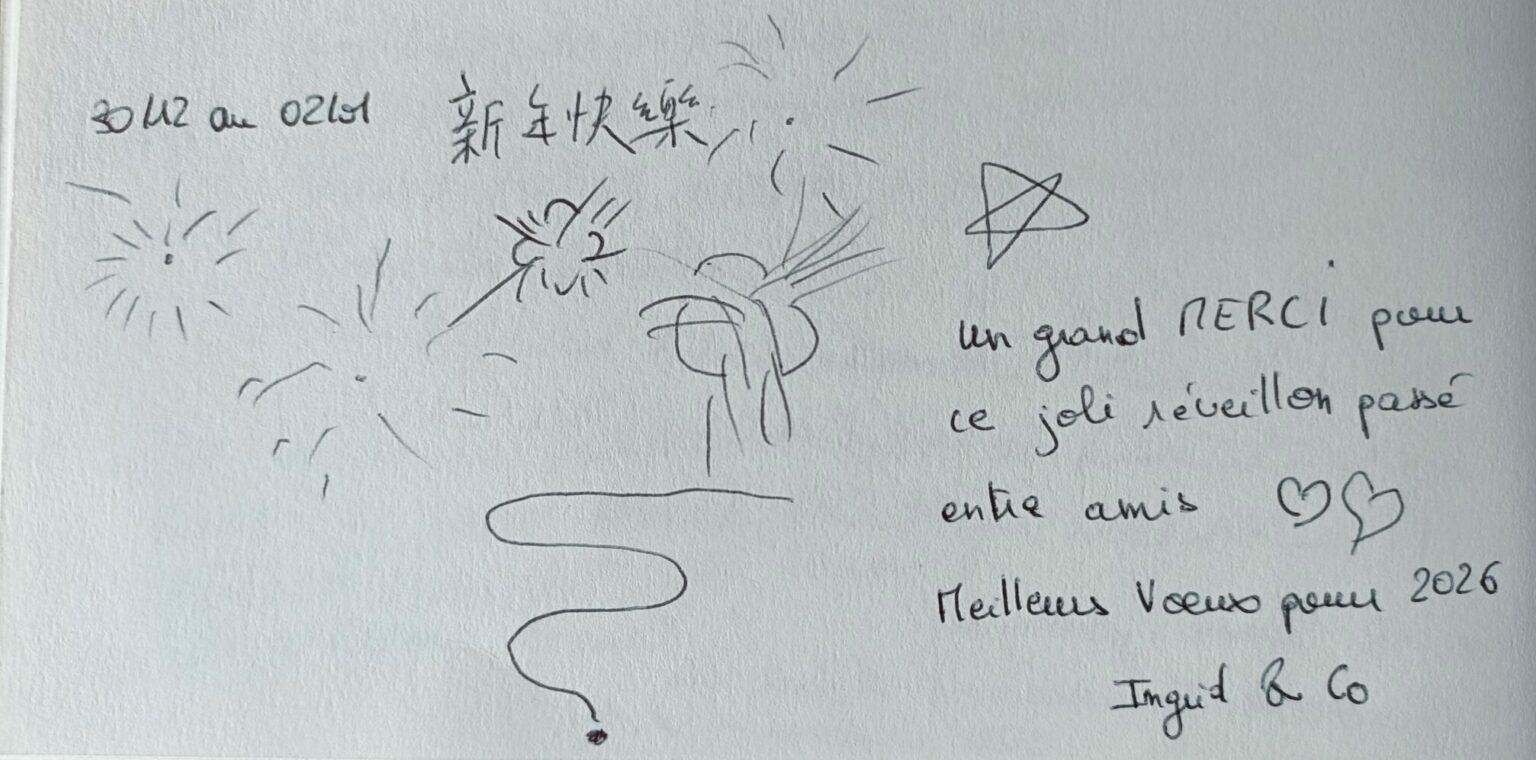 30/12 au 02/01
新年快樂
un grand MERCI pour
ce joli réveillon passé
entre amis
Meilleurs Vœux pour 2026
Ingrid & Co